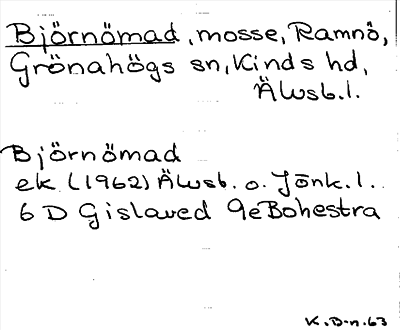 Björnömad, mosse, Ramnö,
Grönahögs sn, Kinds hd,
Älvsb.l.
Björnömad
ek. (1962) Älvsb. o. Jönk. l..
6 D Gislaved 9e Bohestra
K.D-n.63